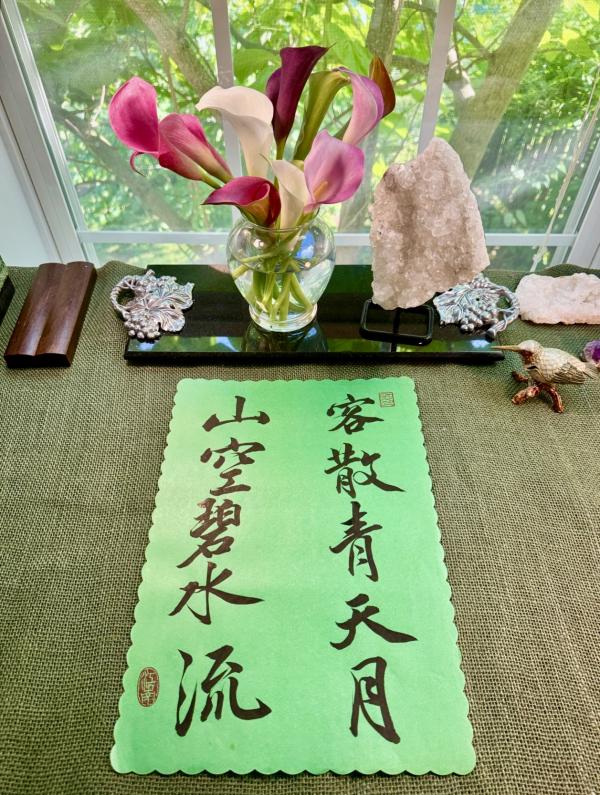 客散青天月
山空碧水流